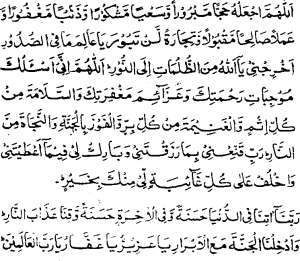 اَللّٰهُمَّ اجْعَلْهُ حَجًّا مَبْرُوْرًا وَّسَعْيًا مَشْكُوْرًا وَّذَنْۢبًا مَغْفُوْرًا وَّ
عَمَلًا صَالِحًا مَّقْبُوْلًا وَّتِجَارَةً لَّنْ تَبُوْرَ يَاعَالِمَ مَا فِي الصُّدُوْرِ
اَخْرِجْنِيْ يَا اَللهُ مِنَ الظُّلُمَاتِ اِلَى النُّوْرِ۔ اَللّٰهُمَّ اِنِّيْ اَسْئَلُكَ
مُوْجِبَاتِ رَحْمَتِكَ وَعَزَائِمَ مَغْفِرَتِكَ وَالسَّلَامَةَ مِنْ
كُلِّ اِثْمٍ وَّالْغَنِيْمَةَ مِنْ كُلِّ بِرٍّ وَّالْفَوْزَ بِالْجَنَّةِ وَالنَّجَاةَ مِنَ
النَّارِ۔ رَبِّ قَنِّعْنِيْ بِمَا رَزَقْتَنِيْ وَبَارِكْ لِيْ فِيْمَا اَعْطَيْتَنِيْ
وَاخْلُفْ عَلٰى كُلِّ غَائِبَةٍ لِّيْ مِنْكَ بِخَيْرٍ۔
رَبَّنَا اٰتِنَا فِي الدُّنْيَا حَسَنَةً وَّفِي الْاٰخِرَةِ حَسَنَةً وَّقِنَا عَذَابَ النَّارِ۔
وَاَدْخِلْنَا الْجَنَّةَ مَعَ الْاَبْرَارِ يَا عَزِيْزُ يَا غَفَّارُ يَا رَبَّ الْعَالَمِيْنَ۔